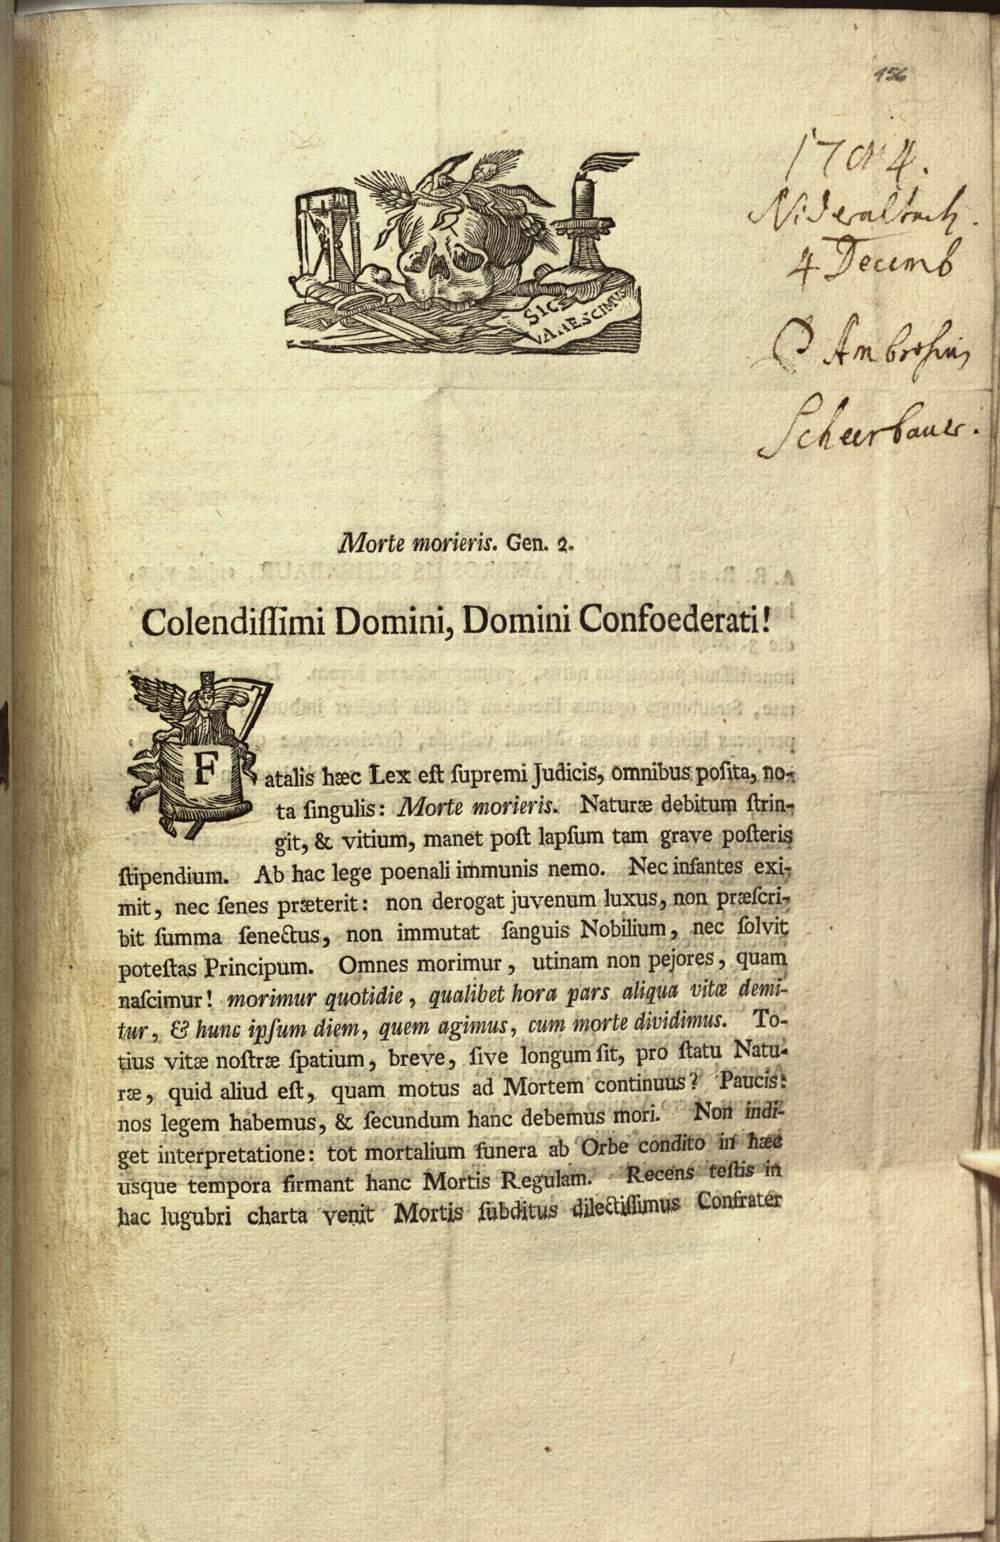 156
4.
Nideraltach.
4 Decemb
P Ambrosius
Scheerbauer.
SIC
VANESCIMUS
Morte morieris. Gen. 2.
Colendiſſimi Domini, Domini Confoederati!
Fatalis hæc Lex eſt ſupremi Judicis, omnibus poſita, no-
ta ſingulis: Morte morieris. Naturæ debitum ſtrin-
git, & vitium, manet poſt lapſum tam grave poſteris
ſtipendium. Ab hac lege poenali immunis nemo. Nec infantes exi-
mit, nec ſenes præterit: non derogat juvenum luxus, non præſcri-
bit ſumma ſenectus, non immutat ſanguis Nobilium, nec ſolvit
poteſtas Principum. Omnes morimur, utinam non pejores, quam
naſcimur! morimur quotidie, qualibet hora pars aliqua vitæ demi-
tur, & hunc ipſum diem, quem agimus, cum morte dividimus. To-
tius vitæ noſtræ ſpatium, breve, ſive longum ſit, pro ſtatu Natu-
ræ, quid aliud eſt, quam motus ad Mortem continuus? Paucis:
nos legem habemus, & ſecundum hanc debemus mori. Non indi-
get interpretatione: tot mortalium funera ab Orbe condito in hæc
usque tempora firmant hanc Mortis Regulam. Recens teſtis in
hac lugubri charta venit Mortis ſubditus dilectiſſimus Confrater